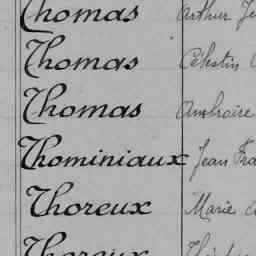 Thomas Arthur Je
Thomas Célestin
Thomas Ambroise
Thominiaux Jean Fra
Thoreux Marie
Thoreux